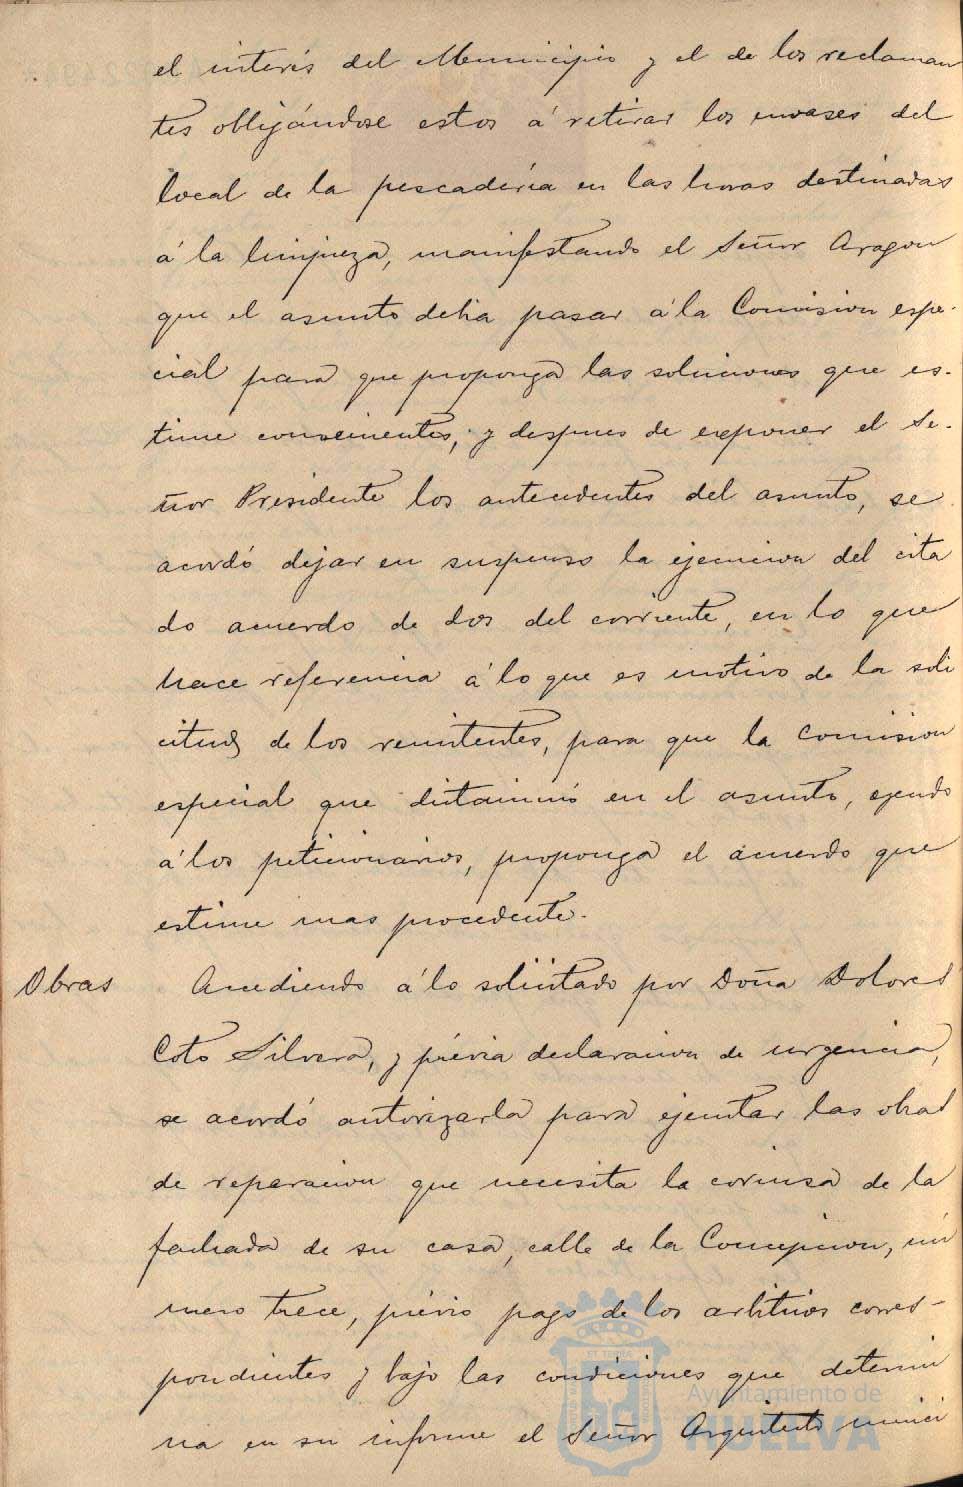 el interés del Municipio y el de los reclaman
tes obligándose estos á retirar los envases del
local de la pescadería en las horas destinadas
á la limpieza, manifestando el Señor Aragon
que el asunto debia pasar á la Comision espe-
cial para que proponga las soluciones que es-
time convenientes, y despues de exponer el Se-
ñor Presidente los antecedentes del asunto, se
acordó dejar en suspenso la ejecucion del cita
do acuerdo de dos del corriente, en lo que
hace referencia á lo que es motivo de la soli
citud de los remitentes, para que la comision
especial que dictaminó en el asunto, oyendo
á los peticionarios, proponga el acuerdo que
estime mas procedente.
Obras
Accediendo á lo solicitado por Doña Dolores
Coto Silvera, y prévia declaracion de urgencia,
se acordó autorizarla para ejecutar las obras
de reparacion que necesita la cornisa de la
fachada de su casa, calle de la Concepcion, nú
mero trece, prévio pago de los arbitrios corres-
pondientes y bajo las condiciones que determi
na en su informe el Señor Arquitecto munici
ET TERRA
Ayuntamiento de
HUELVA